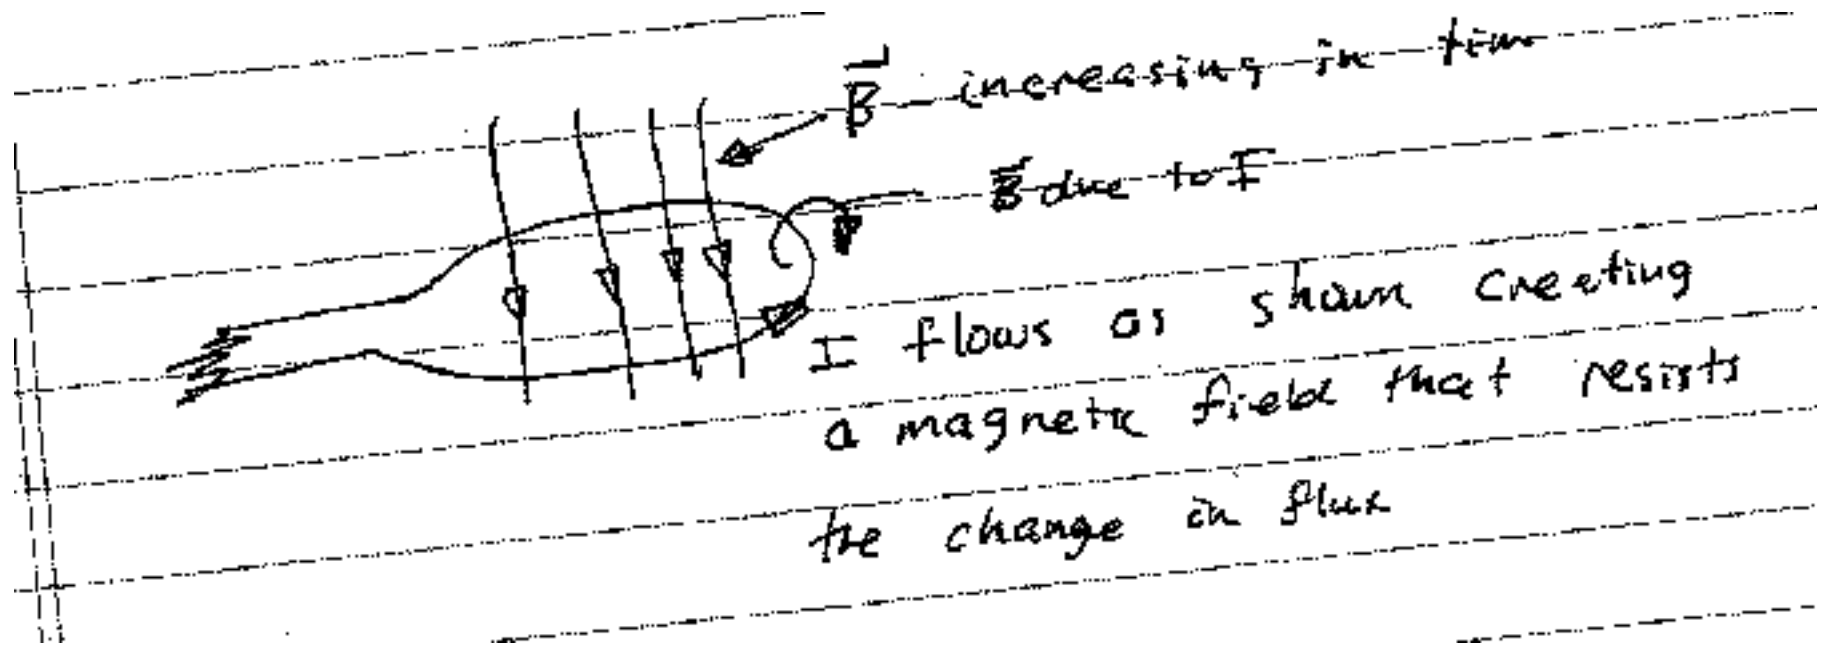 B increasing in time
B due to I
I flows as shown creating
a magnetic field that resists
the change in flux